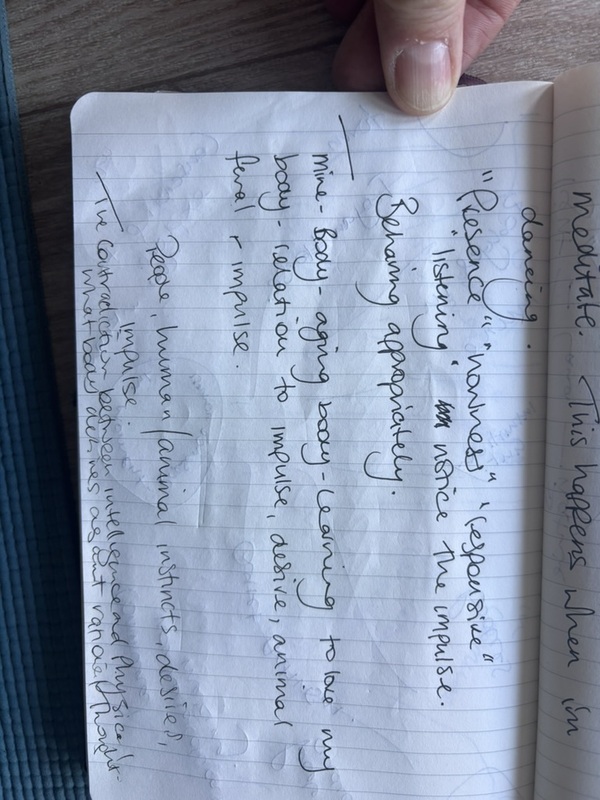 meditate. This happens when im
dancing.
"Presence" "nowness" "responsive"
"listening" notice the impulse.
Behaving appropriately.
mine - Body - aging body - learning to love my
body - relation to impulse, desire, animal
feral + impulse.
People, human/animal instincts, desires,
impulse.
The contradiction between intelligence and Physical-
what body desires as but rational thought